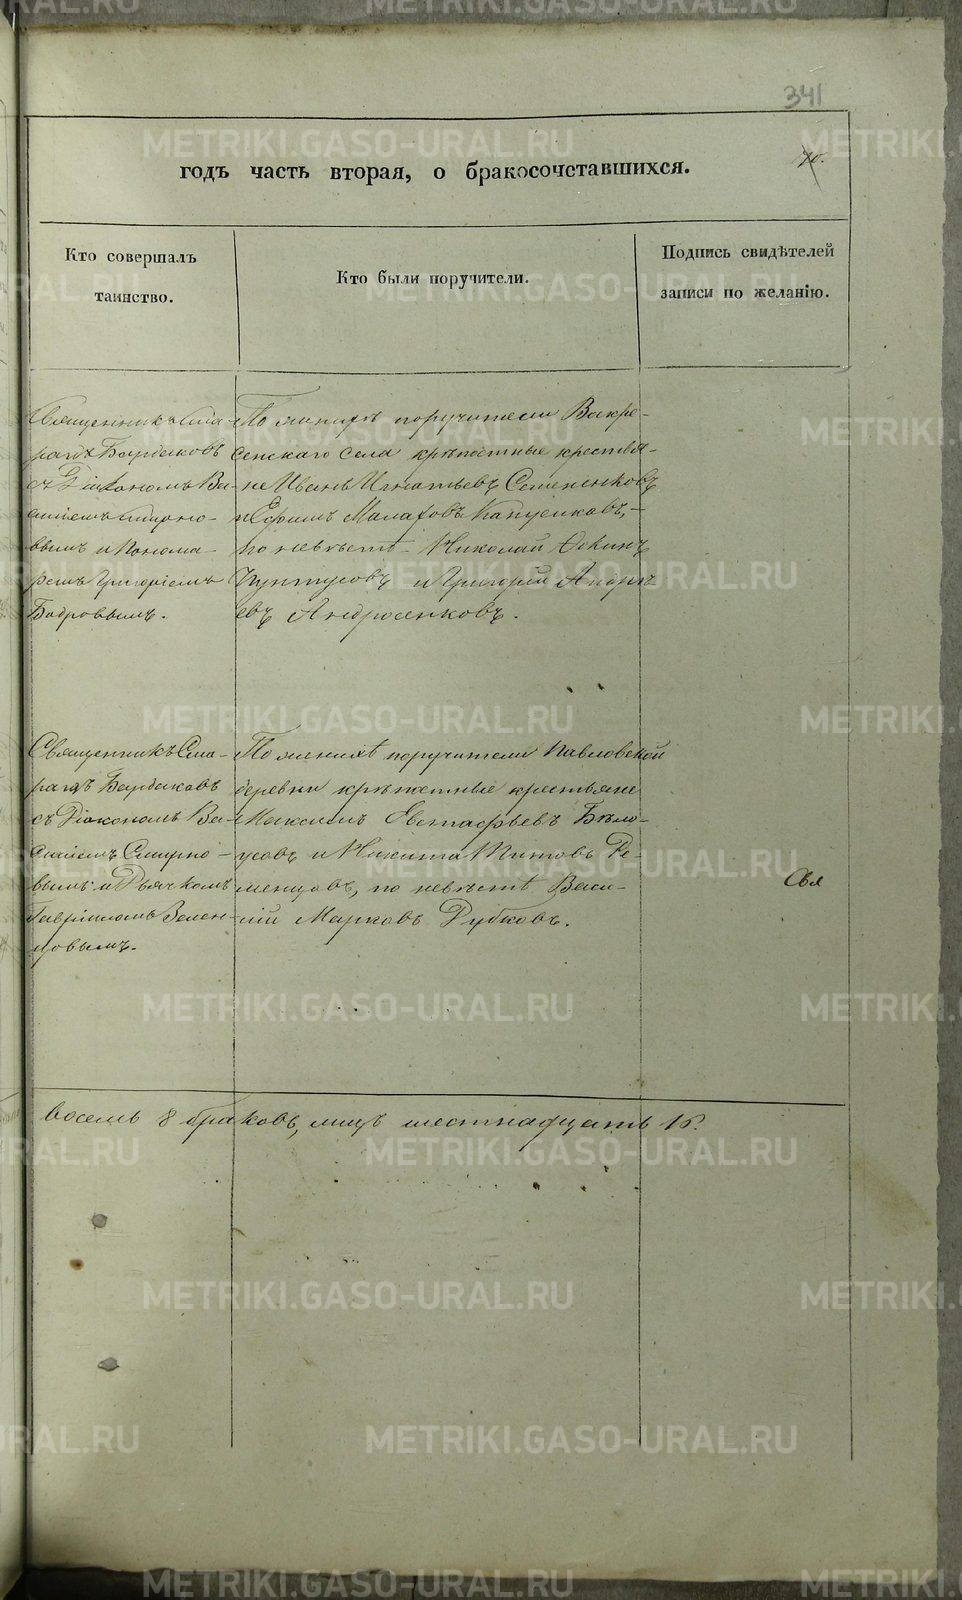 341
70.
годъ часть вторая, о бракосочетавшихся.
Кто совершалъ
таинство.
Кто были поручители.
Подпись свидѣтелей
записи по желанію.
Священникъ Сма-
рагдъ Бардаковъ
съ Діакономъ Ва-
силіемъ Смирно-
вымъ и Понома-
ремъ Григоріемъ
Бобровымъ.
По женихѣ поручители Воскре-
сенскаго села крѣпостные крестья-
не Иванъ Игнатьевъ Семененковъ
и Ефимъ Малаховъ
по невѣстѣ Николай
и Григорій Андре-
евъ Андросенковъ.
Священникъ Сма-
рагдъ Бардаковъ
съ Діакономъ Ва-
силіемъ Смирно-
вымъ и Дьячкомъ
Гавріиломъ Зелен-
цовымъ.
По женихѣ поручители Павловской
деревни крѣпостные крестьяне
Максимъ Евстафьевъ Бѣло-
усовъ и Никита Титовъ Ре-
менцовъ, по невѣстѣ Васи-
лій Марковъ Рубковъ.
Свя
восемь 8 браковъ, лицъ шестнадцать 16.
METRIKI.GASO-URAL.RU